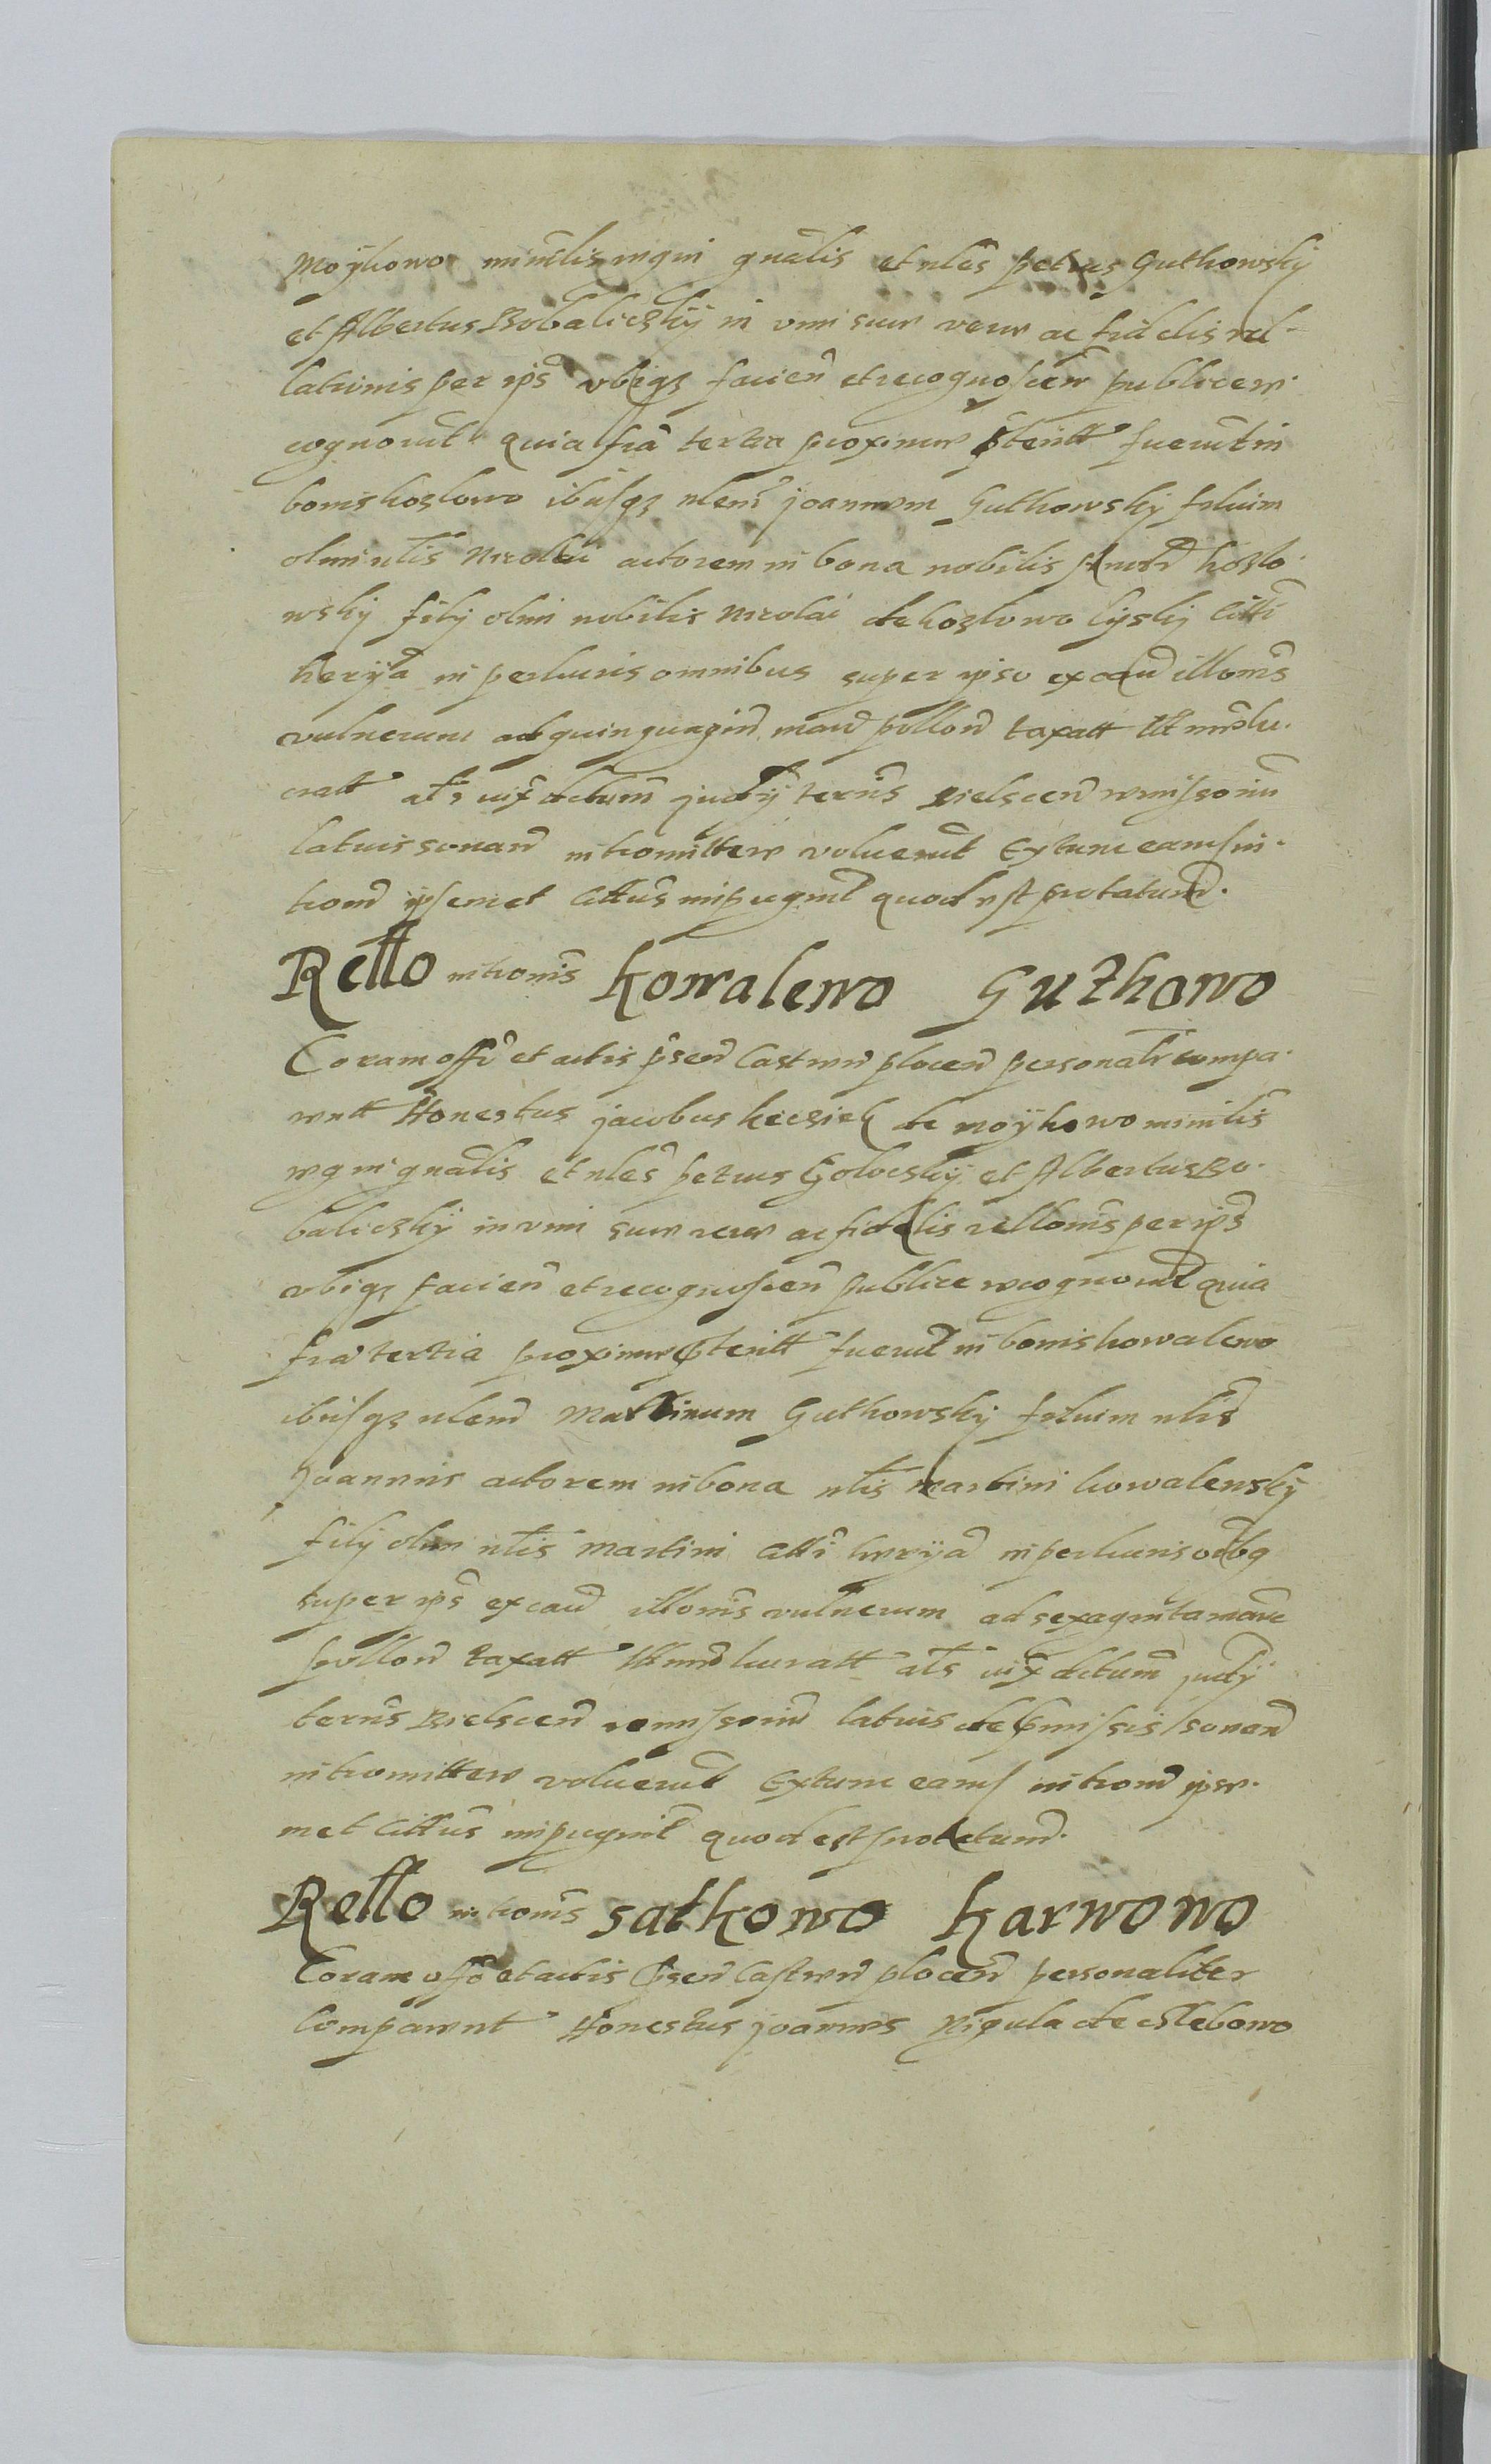 Moÿkowo minrlis regni gnalis et nles petrus Guthowskÿ
et Albertus Bobaliczkÿ in vim sue vere ac fidelis rel-
lationis per ips vbiqz facien et recognoscen publice re-
cognorut quia fria tertia proxime pteritt fuerut in
bonis kozlowo ibusqz nlem joannem Guthowskÿ filium
olim nlis Nicolai actorem in bona nobilis kozlo-
wskÿ filÿ olim nobilis Nicolai de kozlowo citti
herÿd in perlucris omnibus super ipso ex caud illonis
vulnerum ad quinquagind marc pollon taxatt et
cratt als iux dctum judÿ terris Bielscen remissorium
latius sonand intromittere voluerut Extunc eams in-
trom ipsemet cittus impugnt quod est protatum.
Rello intromis kowalewo Guthowo
Coram offo et actis psen Castren plocen personalr compa-
rutt Honestus jacobus kiczieh de moÿkowo minrlis
regni gnalis et nles petrus Golocskÿ et Albertus Bo-
baliczkÿ in vim sue vere ac fidelis rellonis per ips
vbiqz facien et recognoscen publice recognorut quia
fria tertia proxime pteritt fuerut in bonis kowalewo
ibusqz nlem Martinum Guthowskÿ filium nlis
Joannis actorem in bona nlis Martini kowalewskÿ
filÿ olim nlis Martini citti herÿd in perlucris oibq
super ips ex caud illonis vulnerum ad sexaginta marc
pollon taxatt lucratt als iux dctum judÿ
terris Bielscen remissorium latius de pmissis sonand
intromittere voluerut Extunc eams introm ipse-
met cittus impugnt quod est protatum.
Rello intromis satkowo karwowo
Coram offo et actis psen Castren plocen personaliter
Comparunt Honestus joannes Rigula de